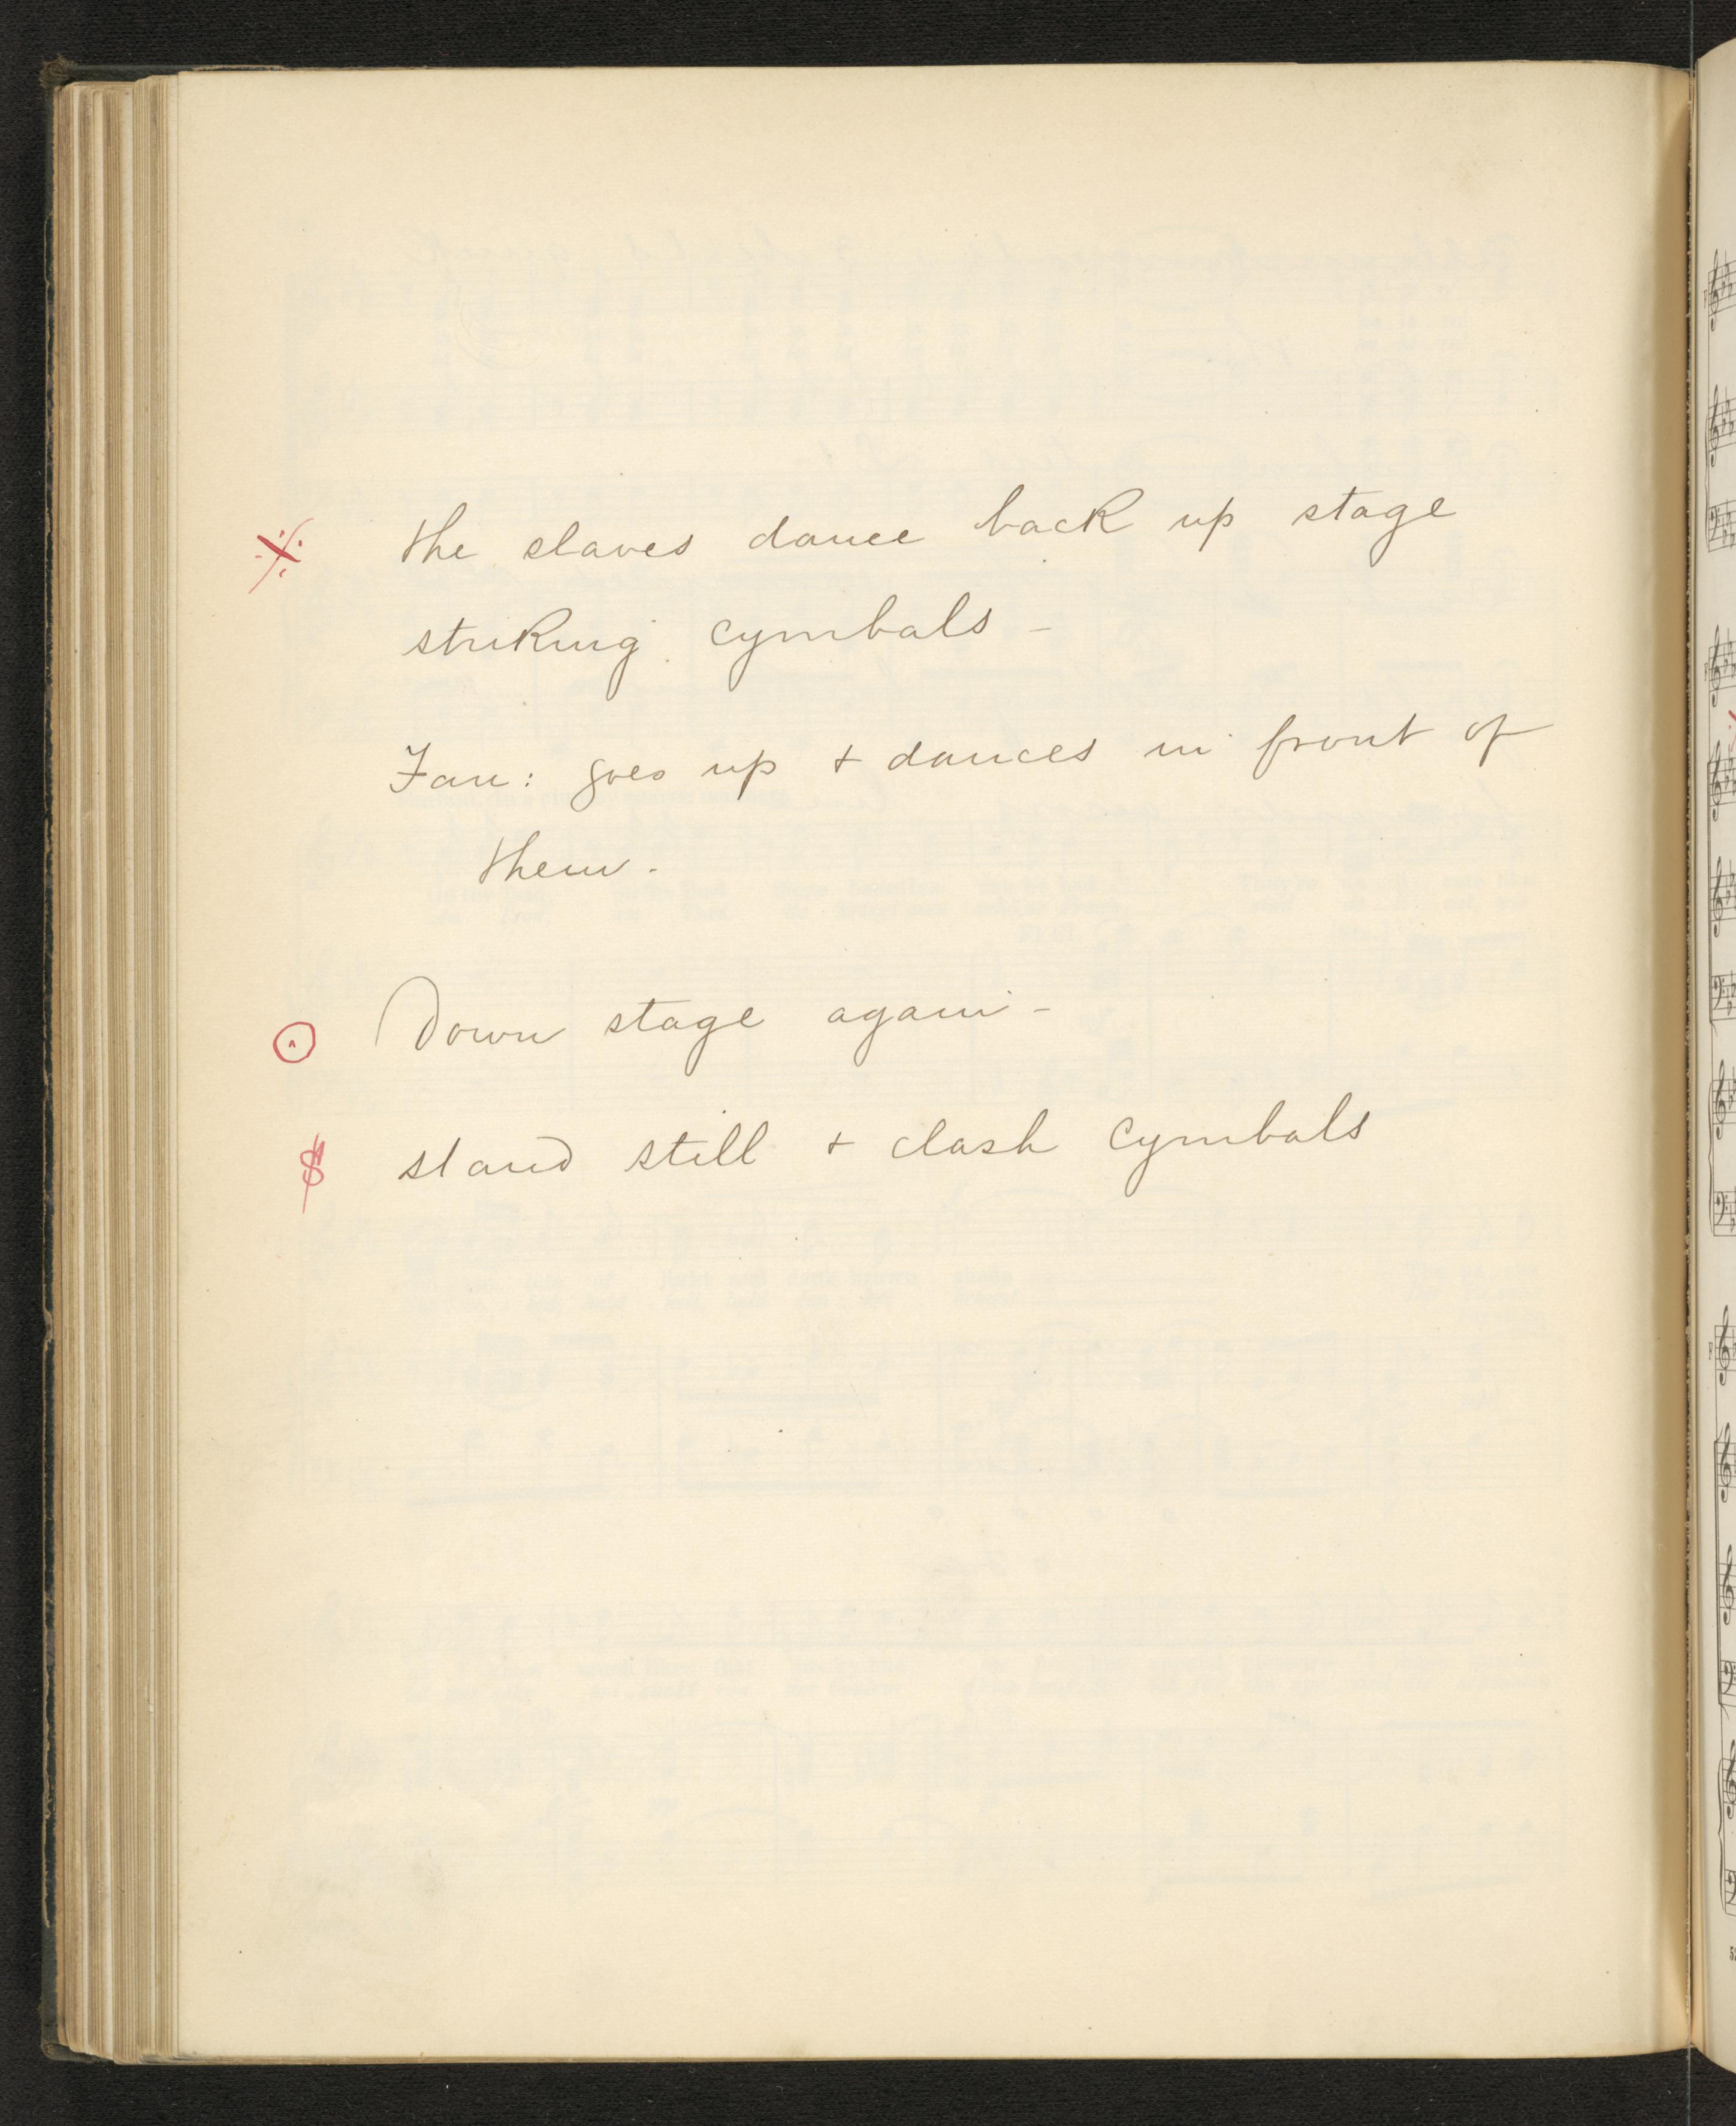 ※ the slaves dance back up stage
striking cymbals –
Fan: goes up + dances in front of
them.
⊙ Down stage again –
$ stand still + clash cymbals